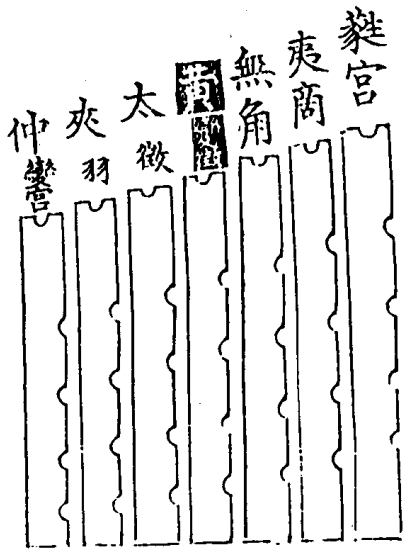 蕤宮
夷商
無角
黃變徵
太徵
夾羽
仲變宮